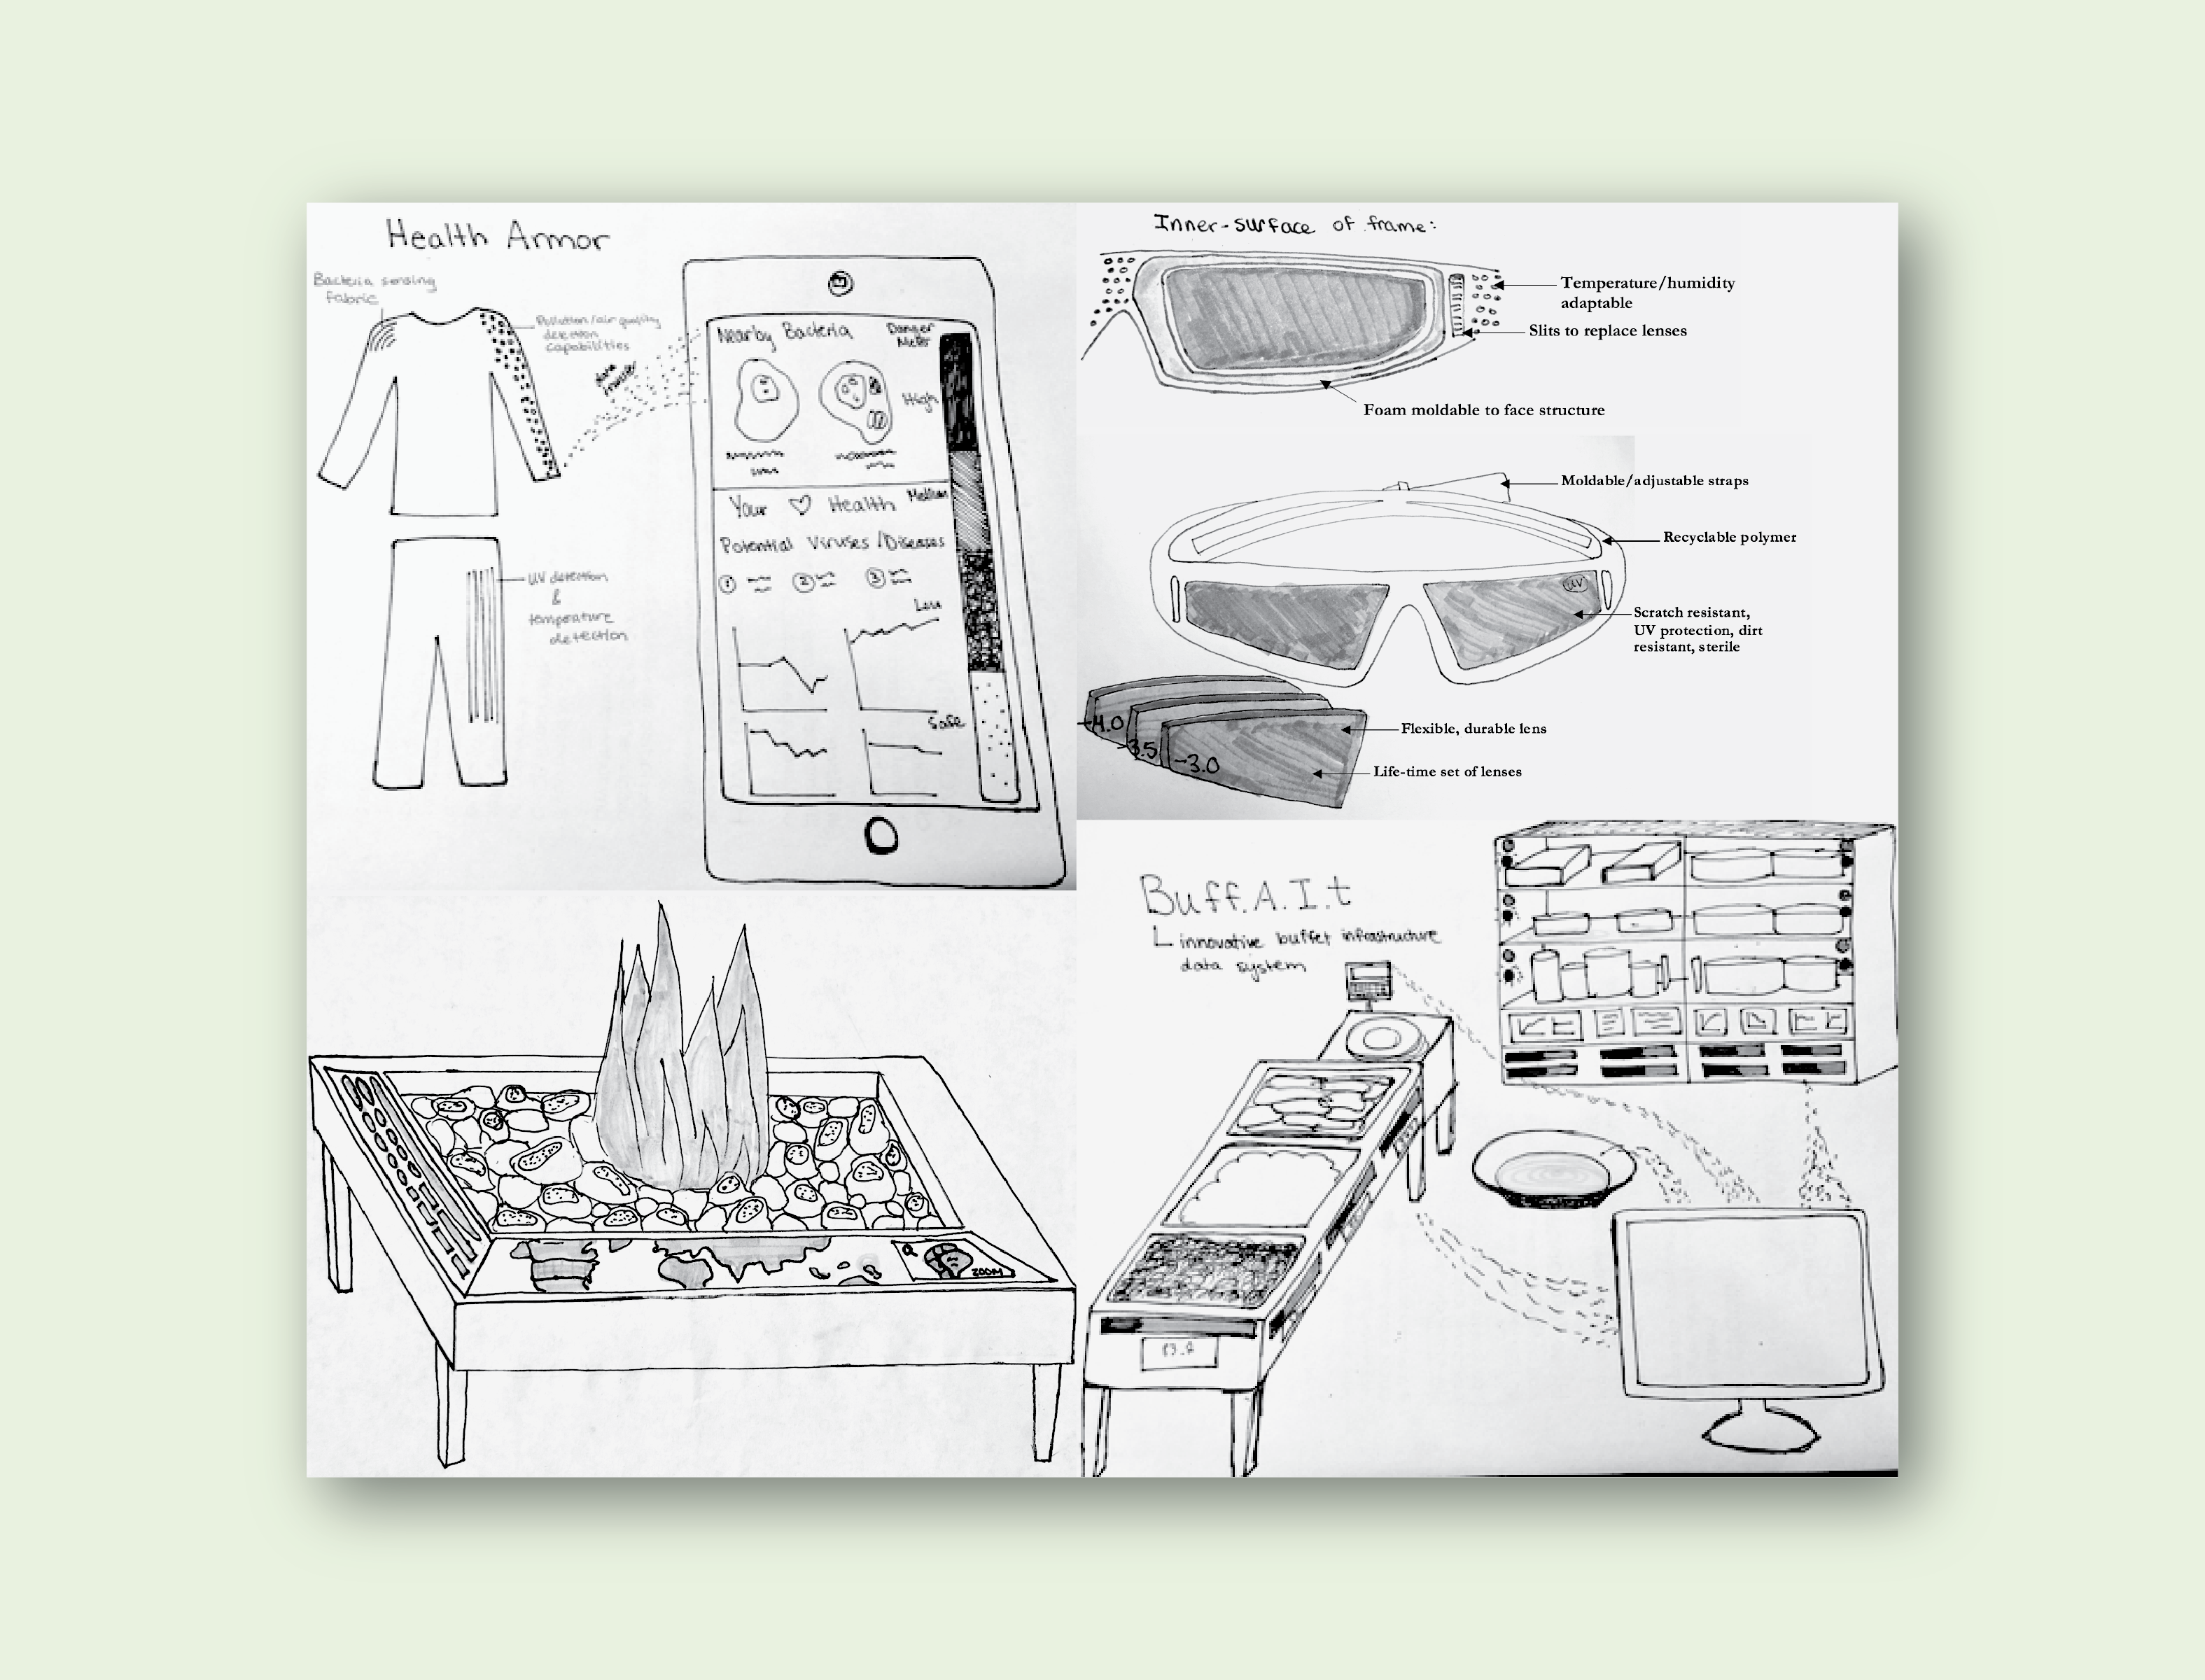 Health Armor
Bacteria sensing
fabric
Pollution/air quality
detection
capabilities
Data
transfer
UV detection
&
temperature
detection
Nearby Bacteria
Danger
Meter
High
Your ♡ Health
Medium
Potential Viruses/Diseases
1 2 3
Less
Safe
Inner-surface of frame:
Temperature/humidity
adaptable
Slits to replace lenses
Foam moldable to face structure
Moldable/adjustable straps
Recyclable polymer
UV
Scratch resistant,
UV protection, dirt
resistant, sterile
-4.0
-3.5
-3.0
Flexible, durable lens
Life-time set of lenses
ZOOM
Buff.A.I.t
innovative buffet infrastructure
data system